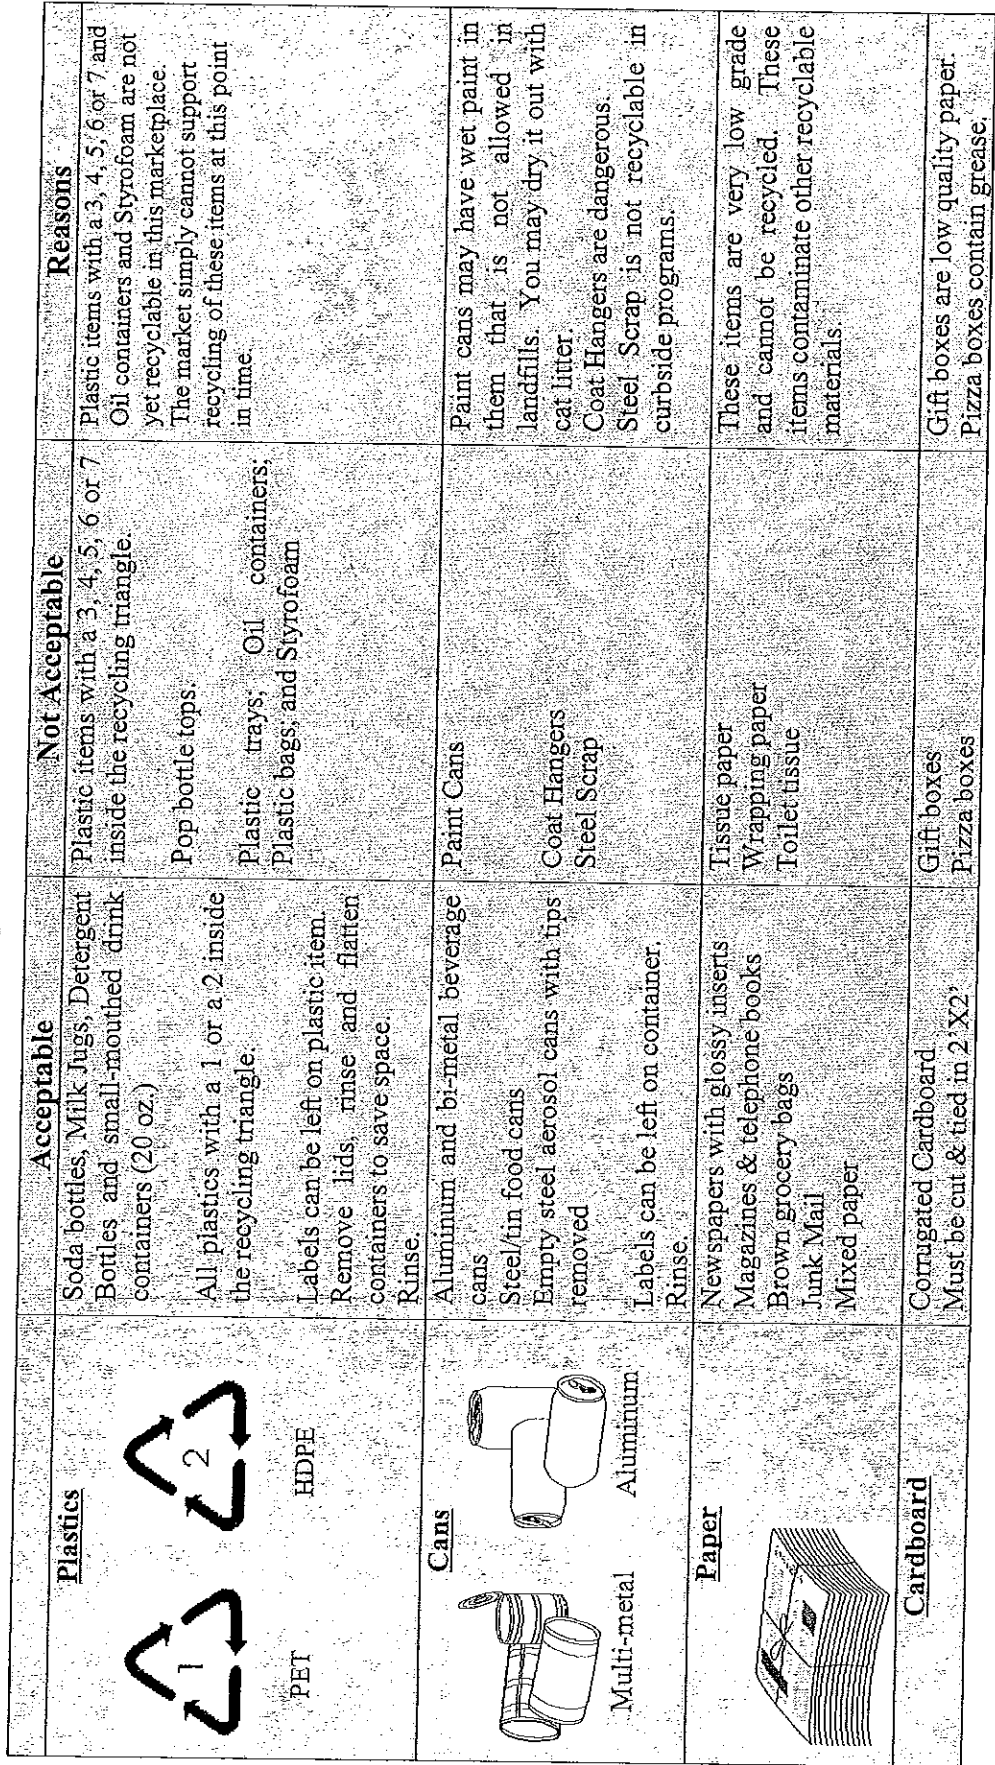 Acceptable
Not Acceptable
Reasons
Plastics
1
2
PET
HDPE
Soda bottles, Milk Jugs, Detergent
Bottles and small-mouthed drink
containers (20 oz.)
All plastics with a 1 or a 2 inside
the recycling triangle.
Labels can be left on plastic item.
Remove lids, rinse and flatten
containers to save space.
Rinse.
Plastic items with a 3, 4, 5, 6 or 7
inside the recycling triangle.
Pop bottle tops.
Plastic trays; Oil containers;
Plastic bags; and Styrofoam
Plastic items with a 3, 4, 5, 6 or 7 and
Oil containers and Styrofoam are not
yet recyclable in this marketplace.
The market simply cannot support
recycling of these items at this point
in time.
Cans
Multi-metal
Aluminum
Aluminum and bi-metal beverage
cans
Steel/tin food cans
Empty steel aerosol cans with tips
removed
Labels can be left on container.
Rinse.
Paint Cans
Coat Hangers
Steel Scrap
Paint cans may have wet paint in
them that is not allowed in
landfills. You may dry it out with
cat litter.
Coat Hangers are dangerous.
Steel Scrap is not recyclable in
curbside programs.
Paper
Newspapers with glossy inserts
Magazines & telephone books
Brown grocery bags
Junk Mail
Mixed paper
Tissue paper
Wrapping paper
Toilet tissue
These items are very low grade
and cannot be recycled. These
items contaminate other recyclable
materials.
Cardboard
Corrugated Cardboard
Must be cut & tied in 2'X2'
Gift boxes
Pizza boxes
Gift boxes are low quality paper.
Pizza boxes contain grease.